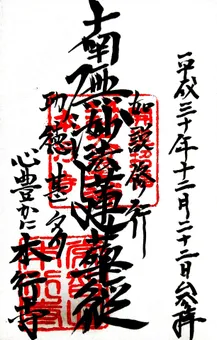 平成三十年十二月二十二日 参拝
如説修行
南無妙法蓮華経
功徳甚多
心豊かに 本行寺